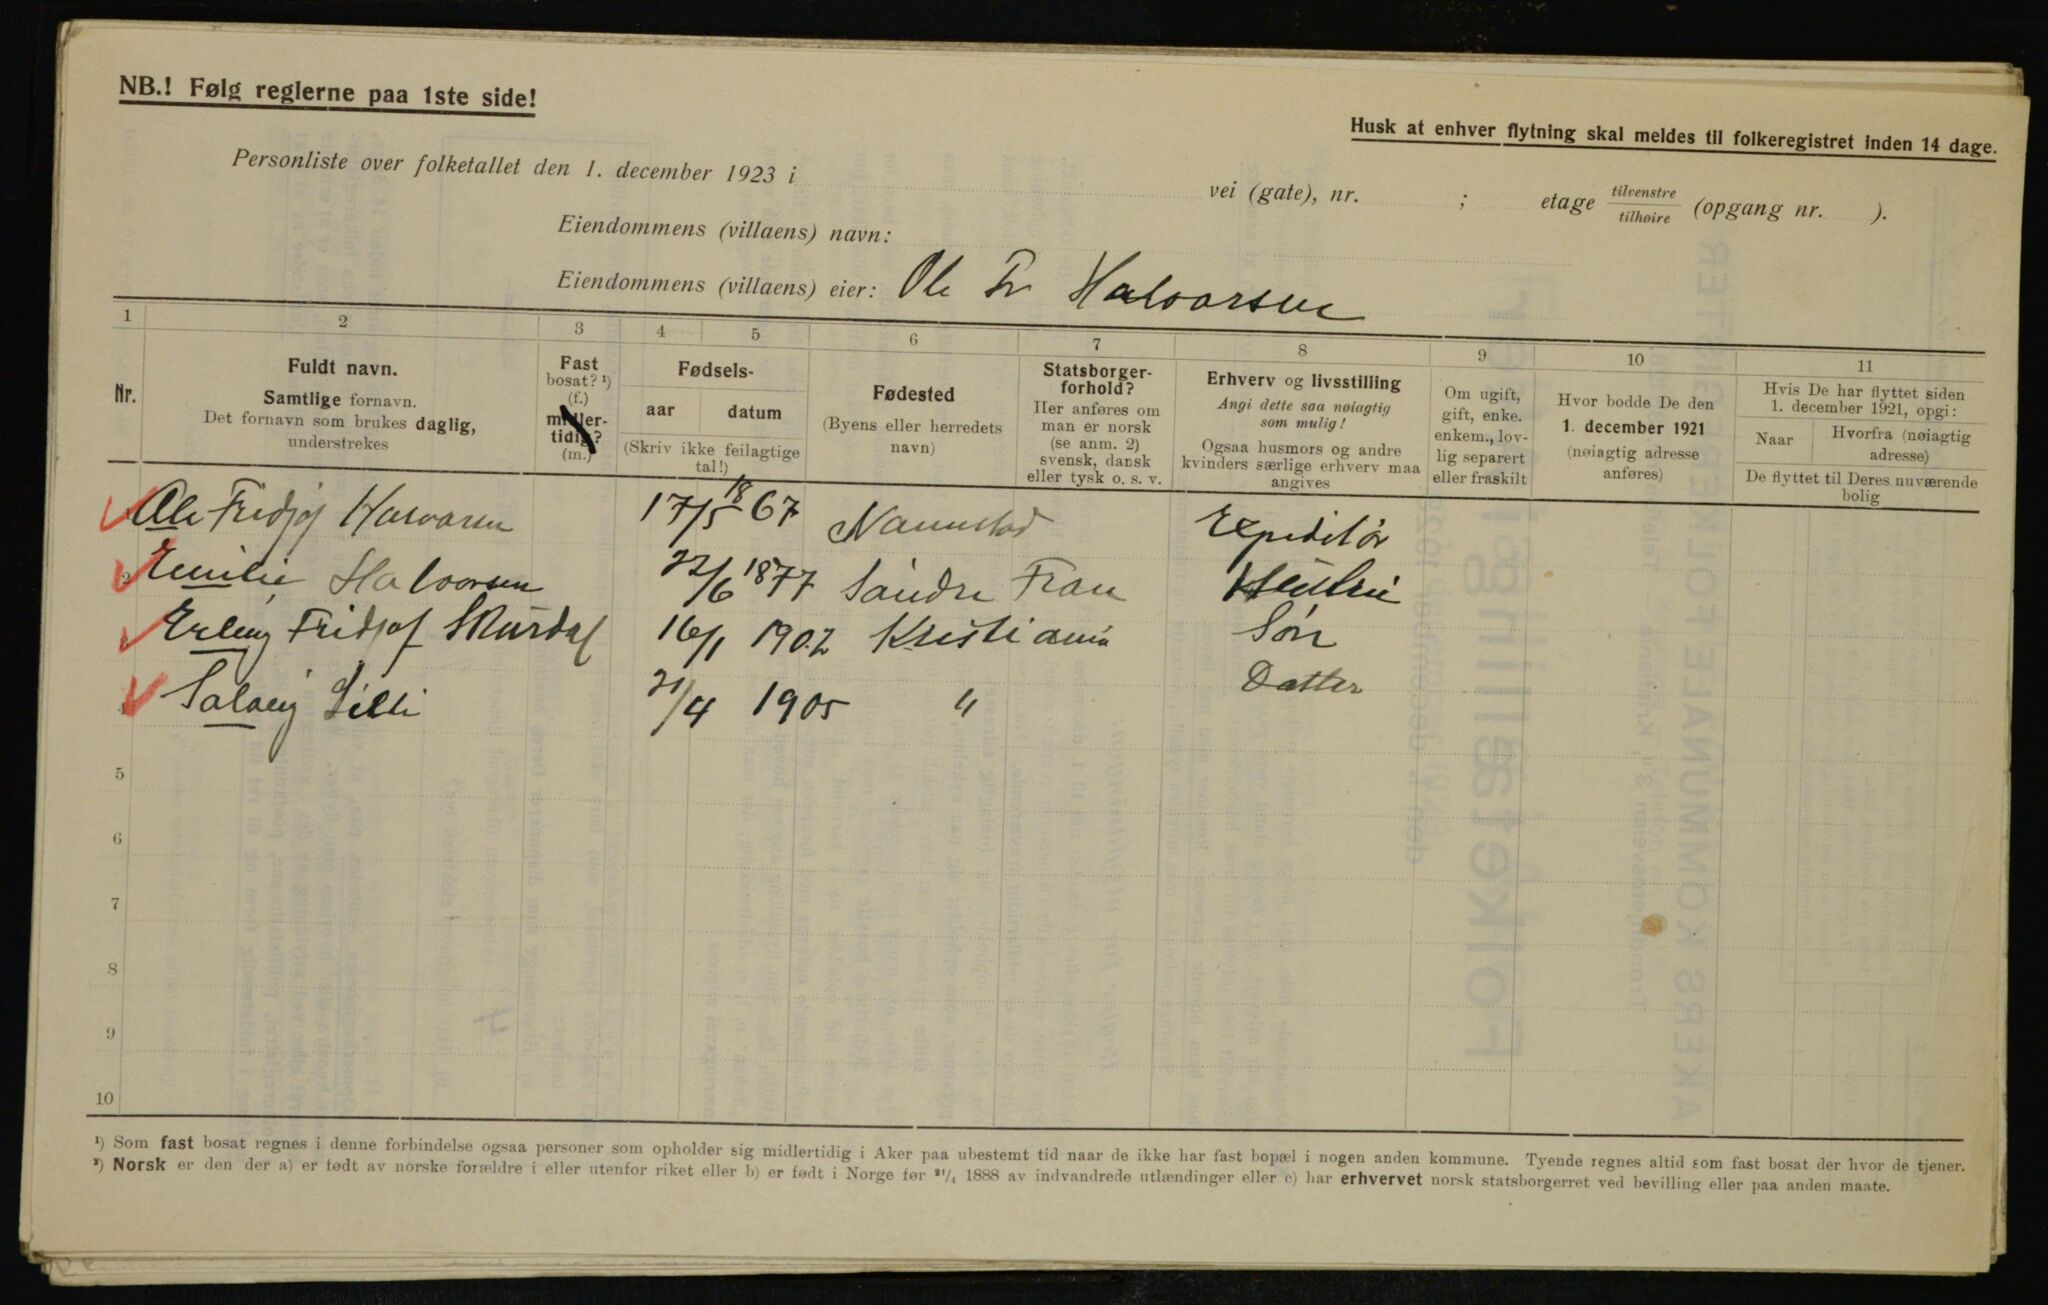 NB.! Følg reglerne paa 1ste side!
Husk at enhver flytning skal meldes til folkeregistret inden 14 dage.
Personliste over folketallet den 1. december 1923 i vei (gate), nr. ; etage tilvenstre tilhøire (opgang nr. ).
Eiendommens (villaens) navn:
Eiendommens (villaens) eier: Ole Fr Halvorsen
1 2 3 4 5 6 7 8 9 10 11
Nr.
Fuldt navn.
Samtlige fornavn.
Det fornavn som brukes daglig,
understrekes
Fast
bosat? ¹)
(f.)
midler-
tidig?
(m.)
Fødsels-
aar datum
(Skriv ikke feilagtige
tal!)
Fødested
(Byens eller herredets
navn)
Statsborger-
forhold?
Her anføres om
man er norsk
(se anm. 2)
svensk, dansk
eller tysk o. s. v.
Erhverv og livsstilling
Angi dette saa nøiagtig
som mulig!
Ogsaa husmors og andre
kvinders særlige erhverv maa
angives
Om ugift,
gift, enke.
enkem., lov-
lig separert
eller fraskilt
Hvor bodde De den
1. december 1921
(nøiagtig adresse
anføres)
Hvis De har flyttet siden
1. december 1921, opgi:
Naar Hvorfra (nøiagtig
adresse)
De flyttet til Deres nuværende
bolig
Ole Fridjof Halvorsen 17/5 1867 Nannestad Expeditør
2 Emilie Halvorsen 22/6 1877 Søndre Fron
Erling Fridjof Skurdal 16/1 1902 Kristiania Søn
4 Solveig Lilli 21/4 1905 " Datter
5
6
7
8
9
10
¹) Som fast bosat regnes i denne forbindelse ogsaa personer som opholder sig midlertidig i Aker paa ubestemt tid naar de ikke har fast bopæl i nogen anden kommune. Tyende regnes altid som fast bosat der hvor de tjener.
²) Norsk er den der a) er født av norske forældre i eller utenfor riket eller b) er født i Norge før ²¹/₄ 1888 av indvandrede utlændinger eller c) har erhvervet norsk statsborgerret ved bevilling eller paa anden maate.